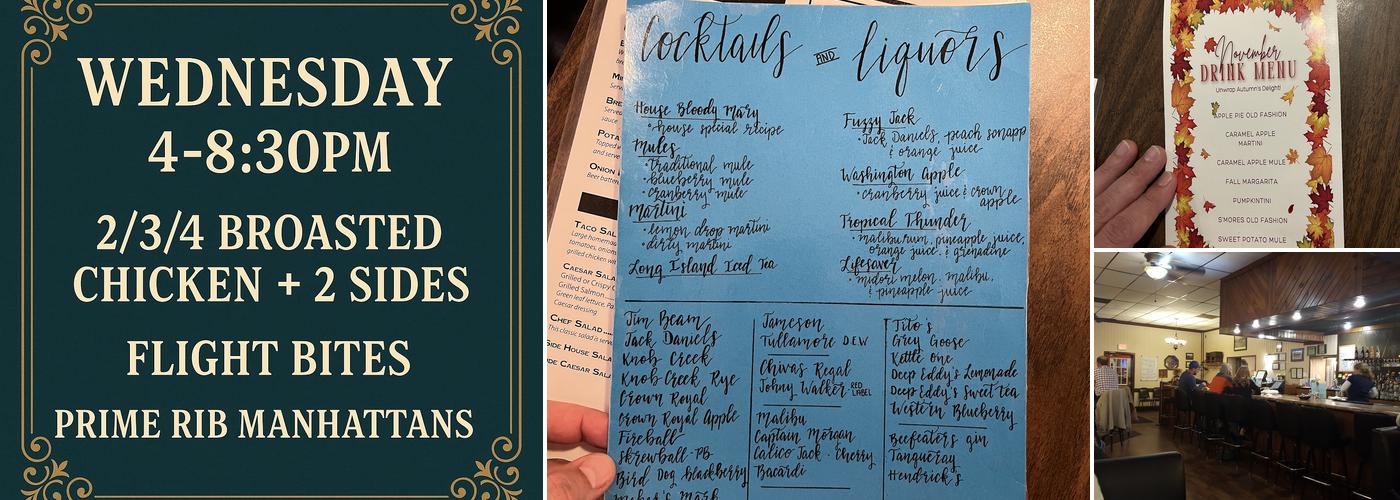 WEDNESDAY
4-8:30PM
2/3/4 BROASTED
CHICKEN + 2 SIDES
FLIGHT BITES
PRIME RIB MANHATTANS
Cocktails AND liquors
House Bloody Mary
• house special recipe
Mules
• traditional mule
• blueberry mule
• cranberry mule
Martini
• lemon drop martini
• dirty martini
Long Island Iced Tea
Fuzzy Jack
• Jack Daniels, peach schapp
& orange juice
Washington Apple
• cranberry juice & crown
apple
Tropical Thunder
• malibu rum, pineapple juice,
orange juice, & grenadine
Lifesaver
• midori melon, malibu,
& pineapple juice
Jim Beam
Jack Daniels
Knob Creek
Knob Creek Rye
Crown Royal
Crown Royal Apple
Fireball
Skrewball · PB
Bird Dog Blackberry
Maker's Mark
Jameson
Tullamore DEW
Chivas Regal
Johny Walker RED LABEL
Malibu
Captain Morgan
Calico Jack · Cherry
Bacardi
Tito's
Grey Goose
Kettle One
Deep Eddy's Lemonade
Deep Eddy's Sweet tea
Western Blueberry
Beefeaters gin
Tanqueray
Hendrick's
Caesar Sala
Grilled or Crispy C
Grilled Salmon
Green leaf lettuce, Pa
Caesar dressing
Chef Salad
This classic salad is serve
ide House Salad
ide Caesar Sala
November
DRINK MENU
Unwrap Autumn's Delight!
APPLE PIE OLD FASHION
CARAMEL APPLE
MARTINI
CARAMEL APPLE MULE
FALL MARGARITA
PUMPKINTINI
S'MORES OLD FASHION
SWEET POTATO MULE